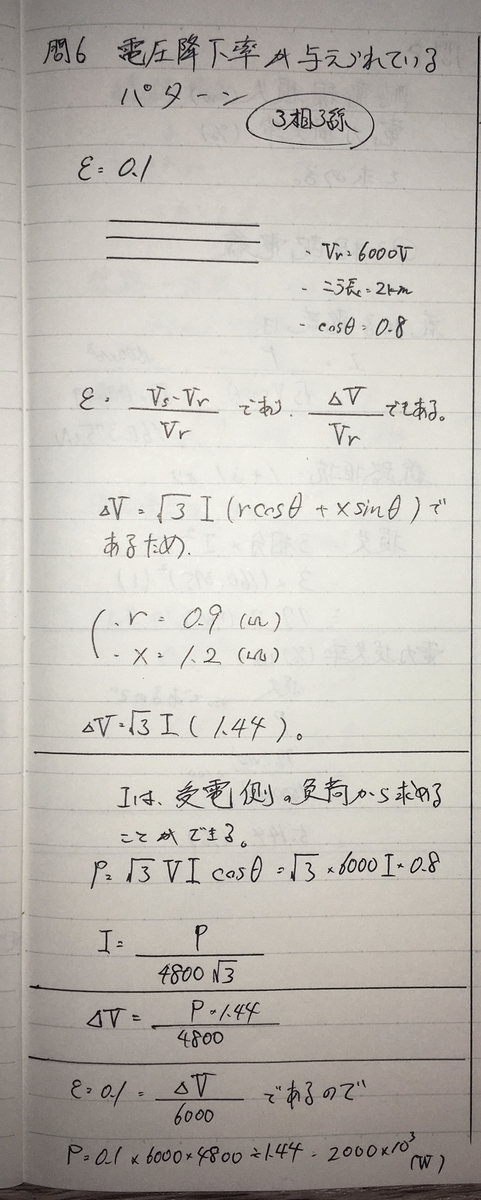 問6 電圧降下率が与えられている
パターン
3相3線
ε = 0.1
・Vr = 6000V
・こう長 = 2km
・cosθ = 0.8
ε = Vs-Vr / Vr であり、 ΔV / Vr でもある。
ΔV = √3 I (rcosθ + xsinθ) で
あるため、
・r = 0.9 (Ω)
・x = 1.2 (Ω)
ΔV = √3 I ( 1.44 )。
Iは、受電側の負荷から求める
ことができる。
P = √3 VI cosθ = √3 × 6000 I × 0.8
I = P / 4800√3
ΔV = P × 1.44 / 4800
ε = 0.1 = ΔV / 6000 であるので
P = 0.1 × 6000 × 4800 ÷ 1.44 = 2000×10³ (W)